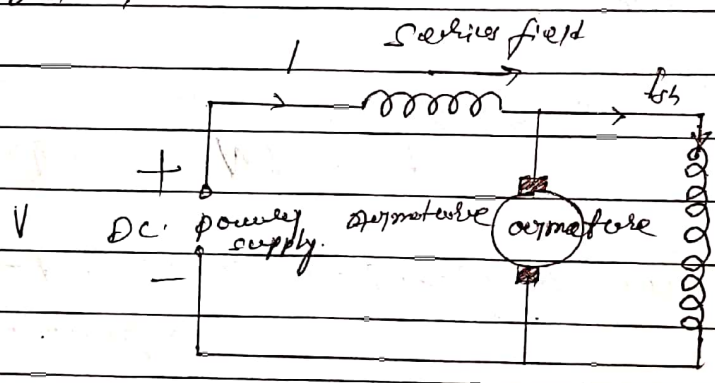 Series field
I
Ish
+
V DC. power supply. armature armature
-